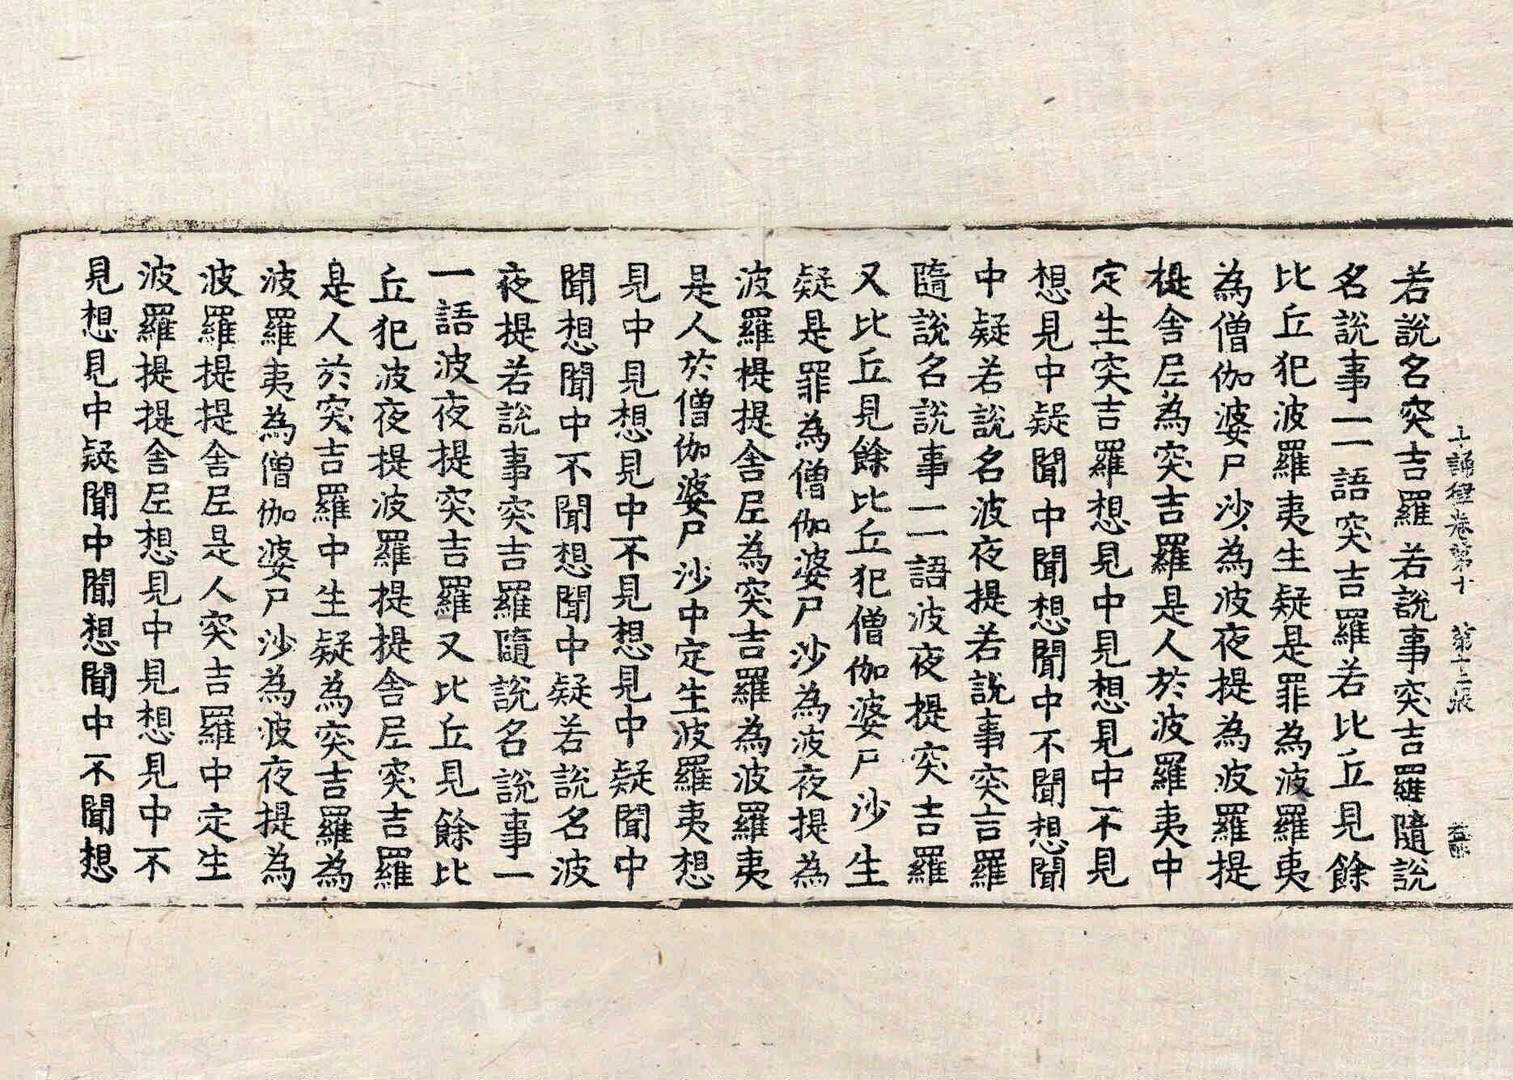 十誦律卷第十 第十三張
若說名突吉羅若說事突吉羅隨說
名說事一一語突吉羅若比丘見餘
比丘犯波羅夷生疑是罪為波羅夷
為僧伽婆尸沙為波夜提為波羅提
提舍𡰱為突吉羅是人於波羅夷中
定生突吉羅想見中見想見中不見
想見中疑聞中聞想聞中不聞想聞
中疑若說名波夜提若說事突吉羅
隨說名說事一一語波夜提突吉羅
又比丘見餘比丘犯僧伽婆尸沙生
疑是罪為僧伽婆尸沙為波夜提為
波羅提提舍𡰱為突吉羅為波羅夷
是人於僧伽婆尸沙中定生波羅夷想
見中見想見中不見想見中疑聞中
聞想聞中不聞想聞中疑若說名波
夜提若說事突吉羅隨說名說事一
一語波夜提突吉羅又比丘見餘比
丘犯波夜提波羅提提舍𡰱突吉羅
是人於突吉羅中生疑為突吉羅為
波羅夷為僧伽婆尸沙為波夜提為
波羅提提舍𡰱是人突吉羅中定生
波羅提提舍𡰱想見中見想見中不
見想見中疑聞中聞想聞中不聞想